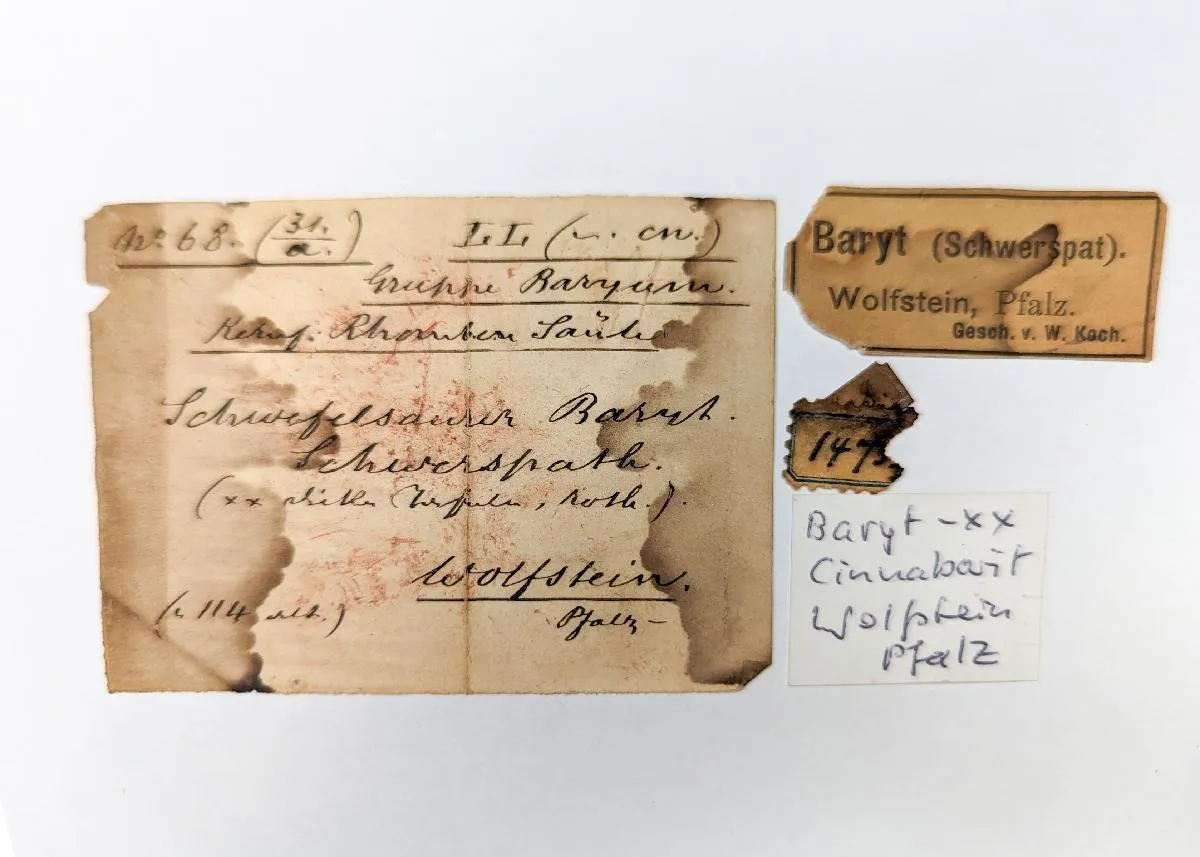 No 68. (31./a.) L.L. (v. cn.)
Gruppe Baryum.
Rhomben Säule
Schwefelsaurer Baryt.
Schwerspath.
(xx dicke Tafeln, roth.)
Wolfstein.
(114 alt.) Pfalz
Baryt (Schwerspat).
Wolfstein, Pfalz.
Gesch. v. W. Koch.
147
Baryt - xx
Cinnabarit
Wolfstein
Pfalz